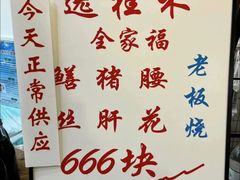 今天正常供应
全家福
鳝丝
猪肝
腰花
老板烧
666块